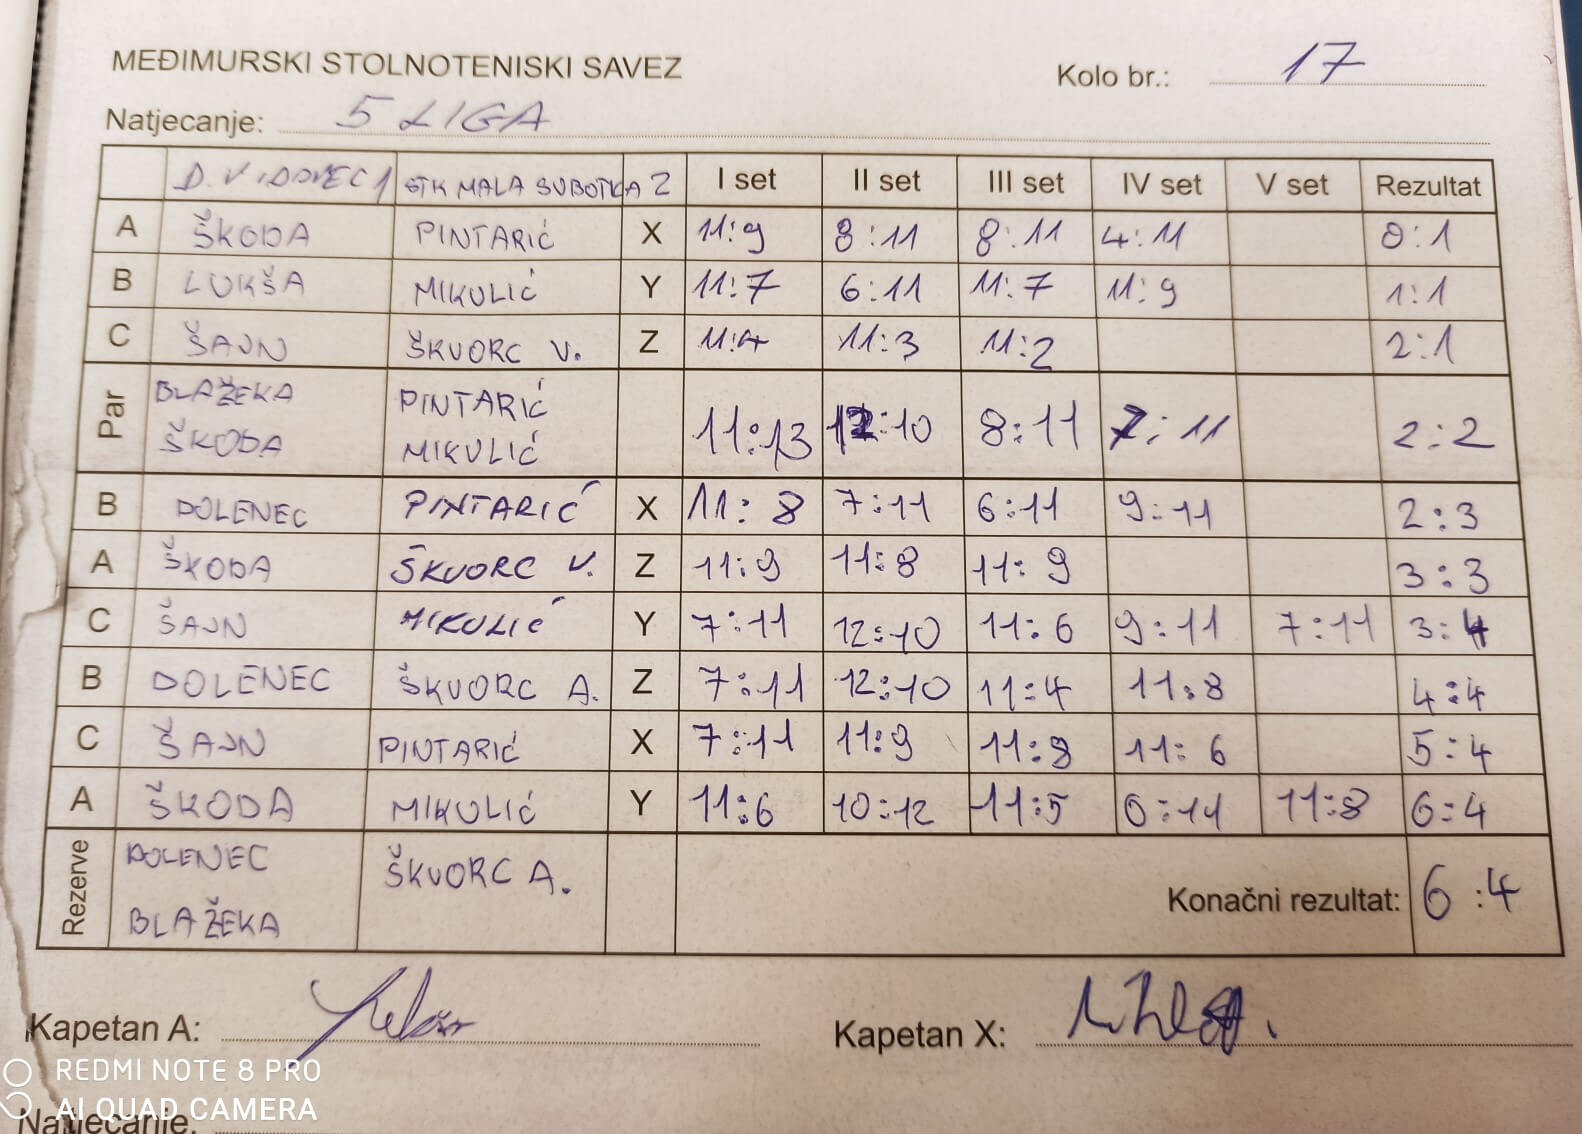 MEĐIMURSKI STOLNOTENISKI SAVEZ
Kolo br.: 17
Natjecanje: 5 LIGA
D. VIDOVEC 1 STK MALA SUBOTICA 2 I set II set III set IV set V set Rezultat
A ŠKODA PINTARIĆ X 11:9 8:11 8:11 4:11 0:1
B LUKŠA MIKULIĆ Y 11:7 6:11 11:7 11:9 1:1
C ŠAJN ŠKVORC V. Z 11:4 11:3 11:2 2:1
Par BLAŽEKA PINTARIĆ
ŠKODA MIKULIĆ 11:13 12:10 8:11 7:11 2:2
B DOLENEC PINTARIĆ X 11:8 7:11 6:11 9:11 2:3
A ŠKODA ŠKVORC V. Z 11:9 11:8 11:9 3:3
C ŠAJN MIKULIĆ Y 7:11 12:10 11:6 9:11 7:11 3:4
B DOLENEC ŠKVORC A. Z 7:11 12:10 11:4 11:8 4:4
C ŠAJN PINTARIĆ X 7:11 11:9 11:9 11:6 5:4
A ŠKODA MIKULIĆ Y 11:6 10:12 11:5 6:11 11:8 6:4
Rezerve DOLENEC ŠKVORC A.
BLAŽEKA
Konačni rezultat: 6:4
Kapetan A:
Kapetan X:
REDMI NOTE 8 PRO
AI QUAD CAMERA
Natjecanje: